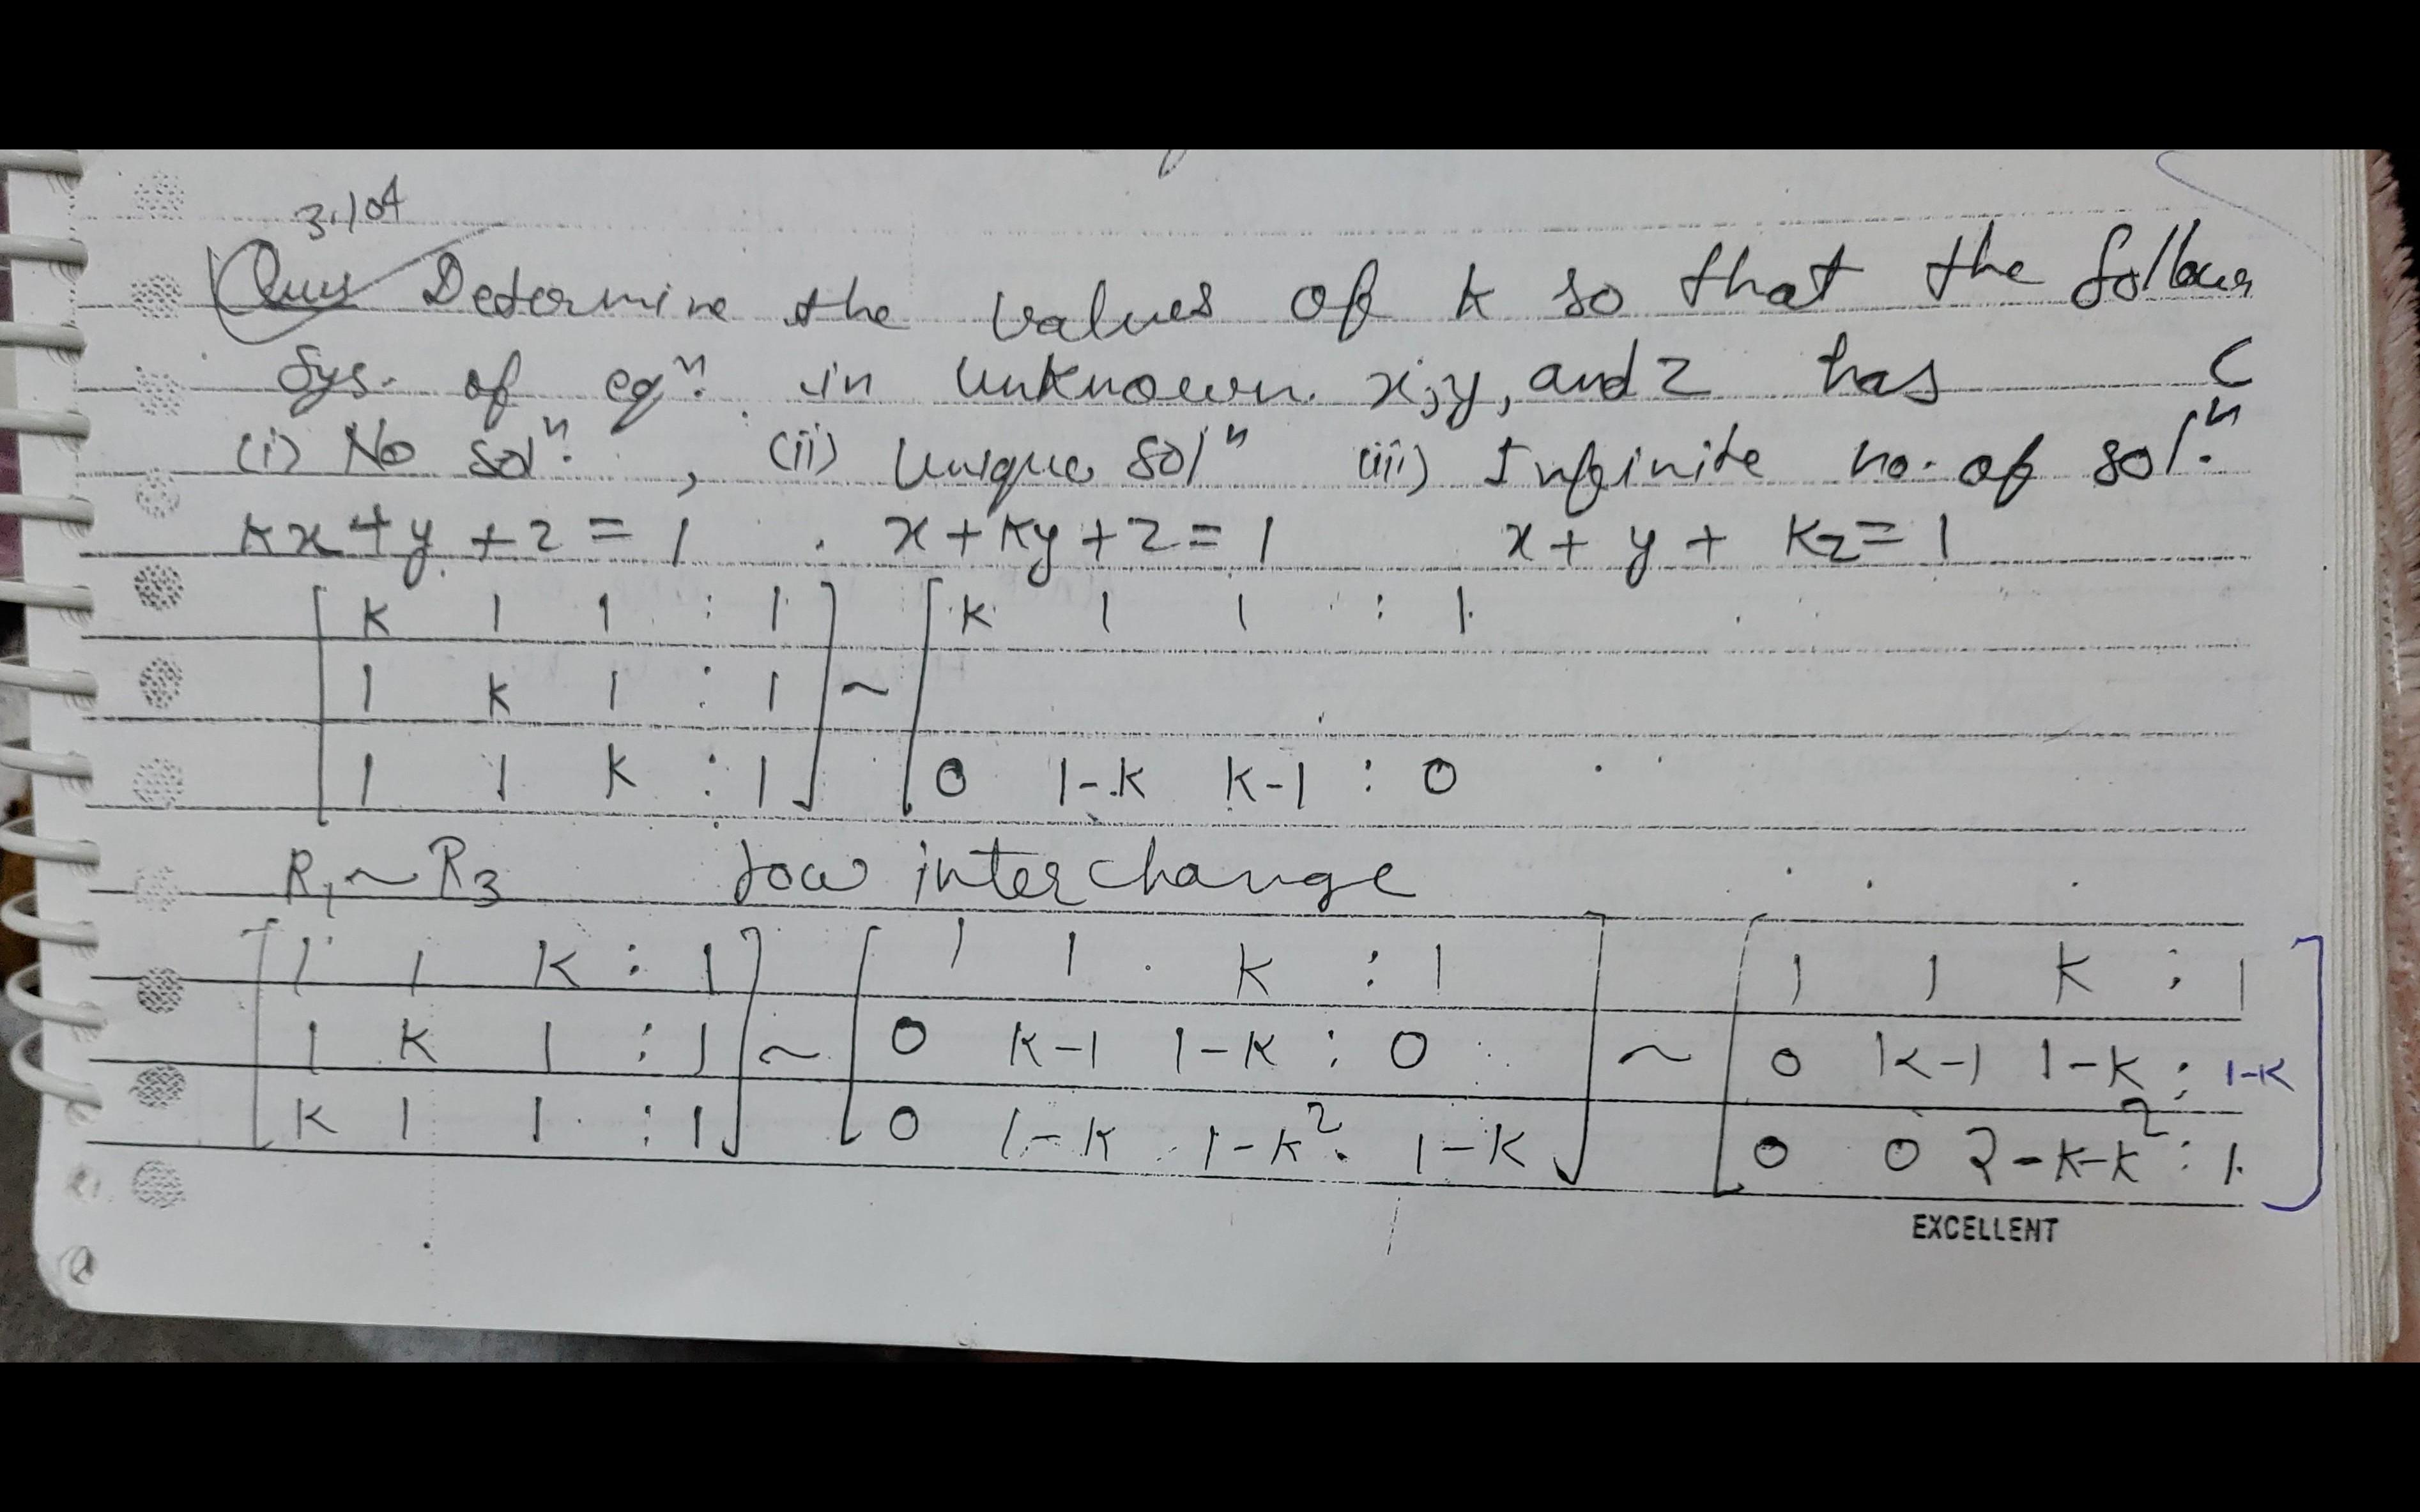 3.104
Ques Determine the values of k so that the follow
Sys. of eqⁿ. in unknown x, y, and z has
(i) No solⁿ. , (ii) Unique solⁿ (iii) Infinite no. of solⁿ.
kx + y + z = 1 . x + ky + z = 1 x + y + kz = 1
[ k 1 1 : 1 ] [ k 1 1 : 1
1 k 1 : 1 ~
1 1 k : 1 0 1-k k-1 : 0
R₁ ~ R₃ row interchange
1 1 k : 1 1 1 k : 1 1 1 k : 1
1 k 1 : 1 ~ 0 k-1 1-k : 0 ~ 0 k-1 1-k : 1-k
k 1 1 : 1 0 1-k 1-k² : 1-k 0 0 2-k-k² : 1
EXCELLENT